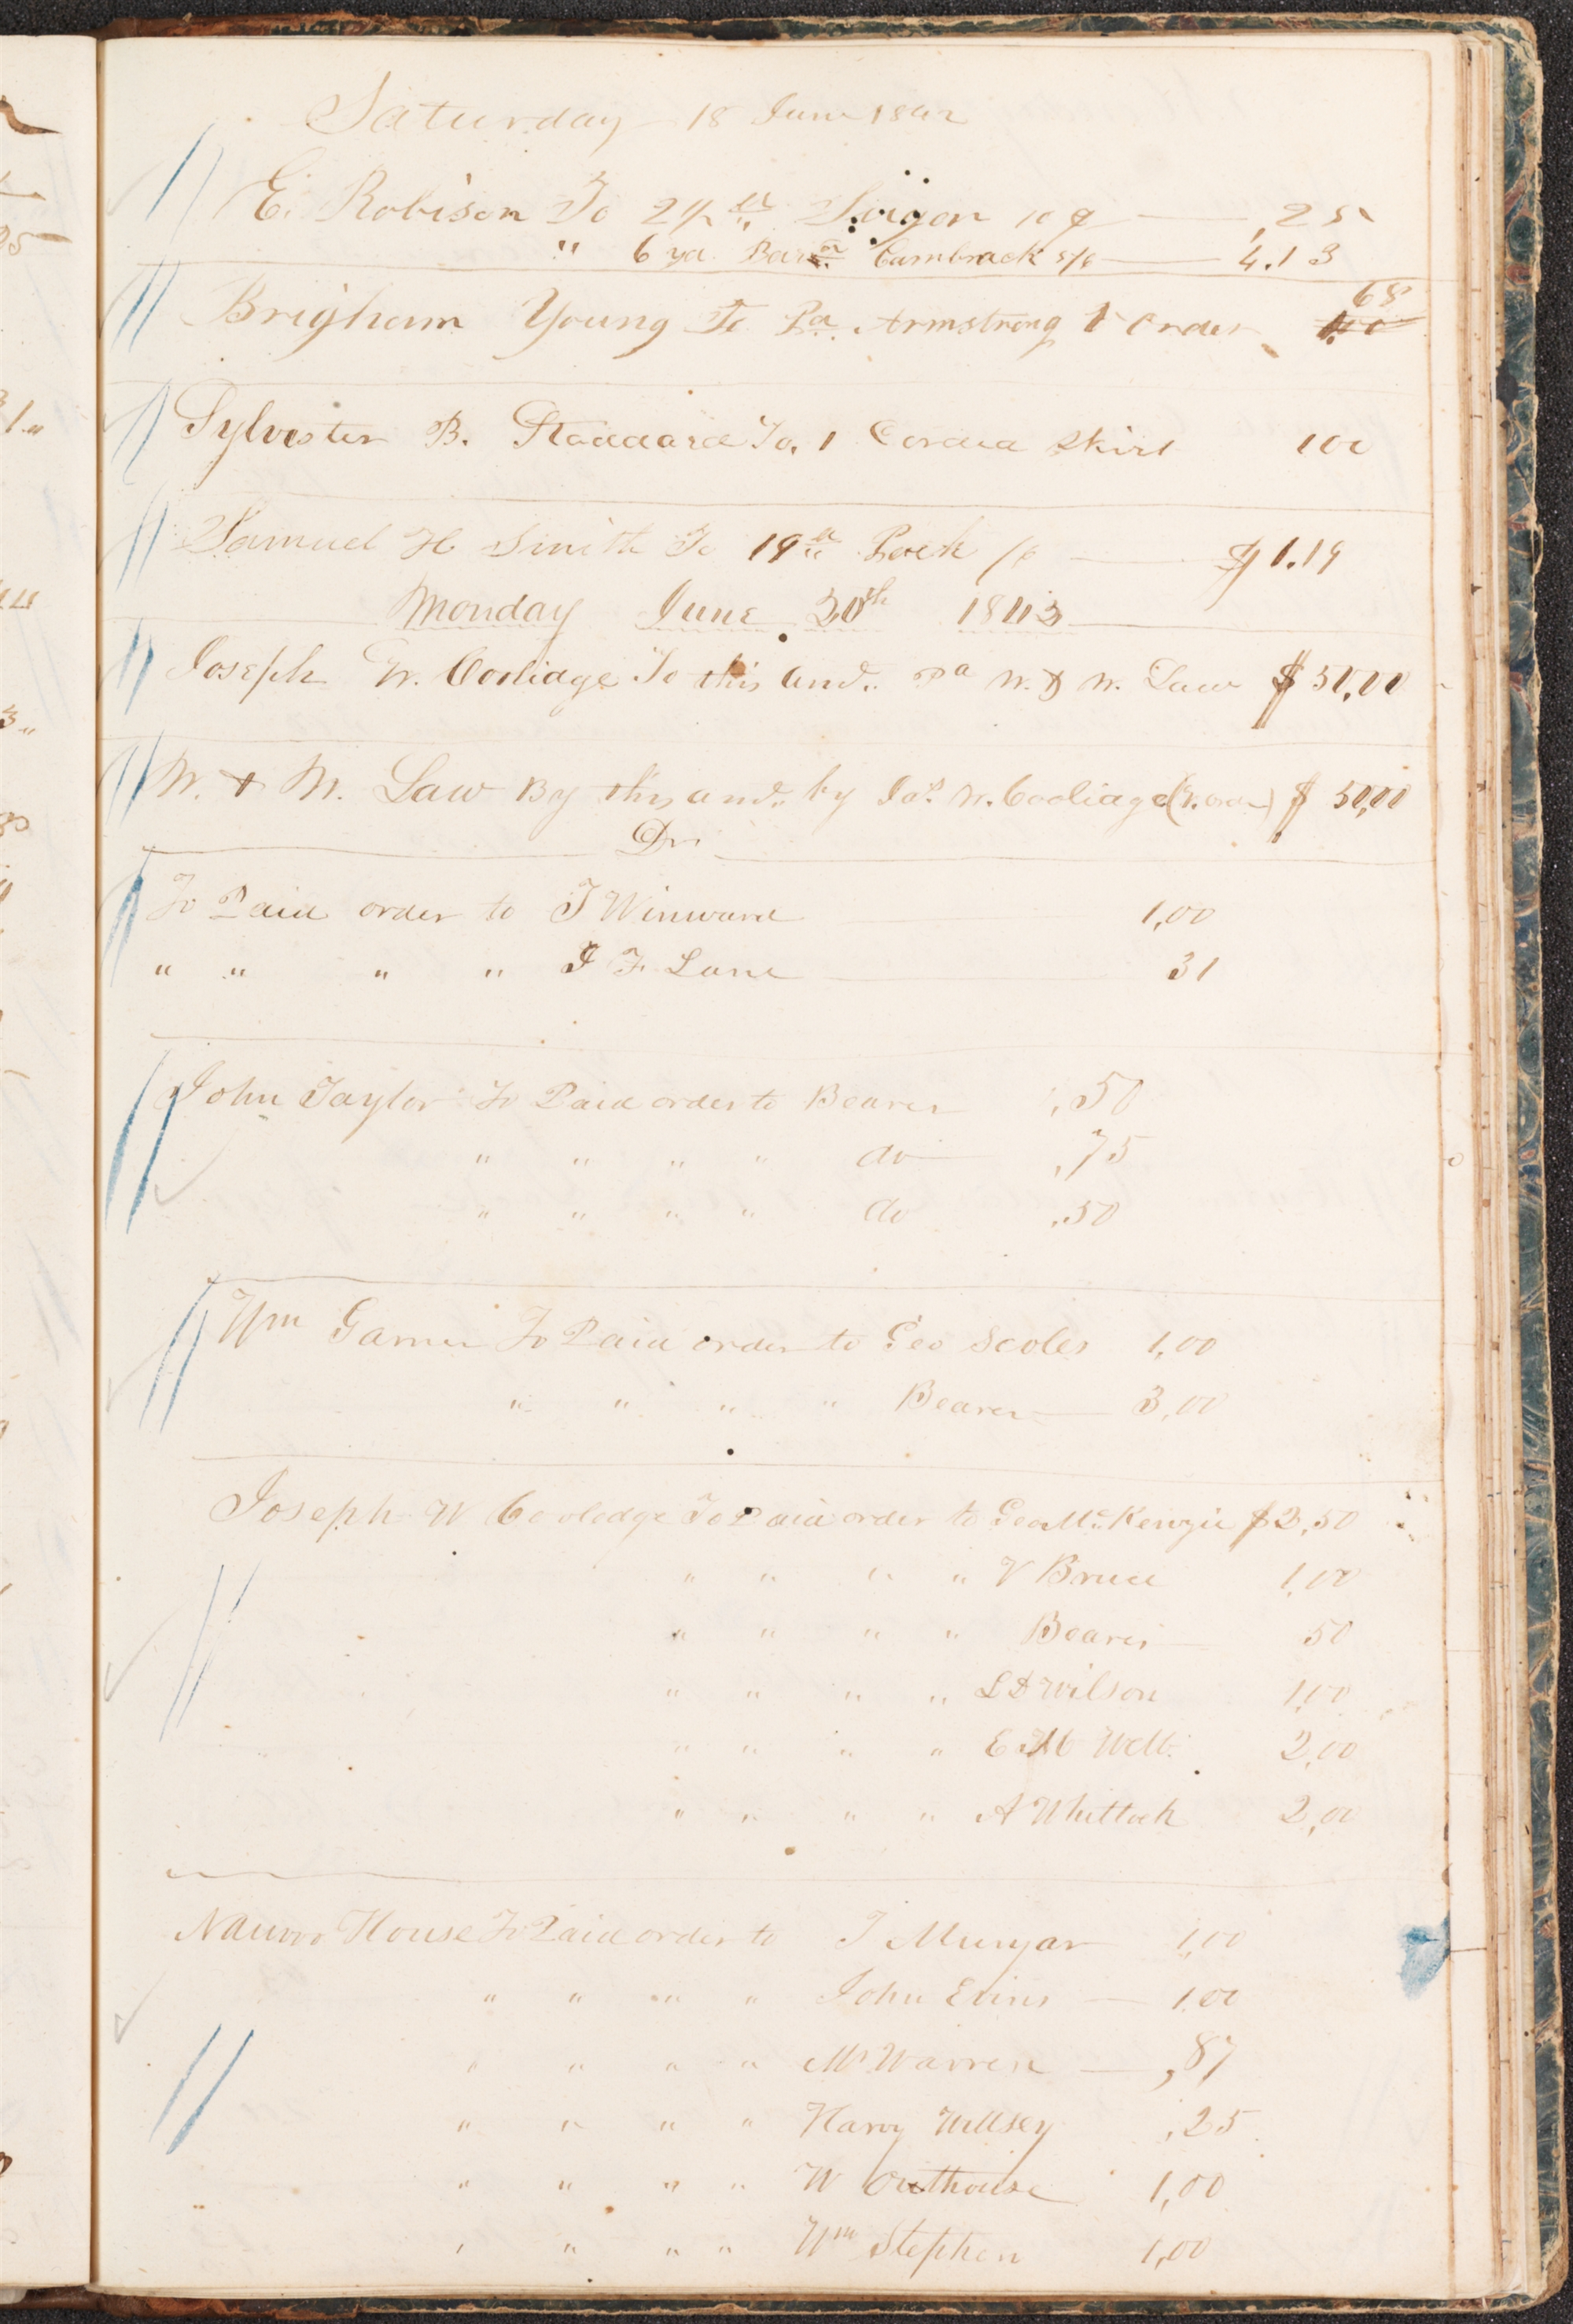 Saturday 18 June 1842
E. Robison To 2½ lb 10 ¢ ,25
" 6 yd Bard Cambrack 5/6 4.13
Brigham Young To Pd Armstrong 1 order 68
Sylvester B. Stoddard To, 1 Corded Skirt 100
Samuel H Smith To 19 lb Pork /6 $1.19
Monday June 20th 1842
Joseph W. Coolidge To this Amt. Pd W. & W. Law $ 50,00
W. & W. Law By this amt. by Jos. W. Coolidge $ 50,00
Dr.
To Paid order to T Winward 1,00
" " " " J F. Lane 31
John Taylor To Paid order to Bearer ,50
" " " " do ,75
" " " " do .50
Wm Garner To Paid order to Geo Scoles 1,00
" " " " Bearer 3,00
Joseph W Cooledge To Paid order to Geo McKenzie $2,50
" " " " V Bruce 1,00
" " " " Bearer 50
" " " " L D Wilson 1,00
" " " " E M Webb 2,00
" " " " A Whitlock 2,00
Nauvoo House To Paid order to J Munjar 1,00
" " " " John Evins 1.00
" " " " Mr Warren ,87
" " " " Harvy Willsey ,25
" " " " W Outhouse 1,00
" " " " Wm Stephen 1,00